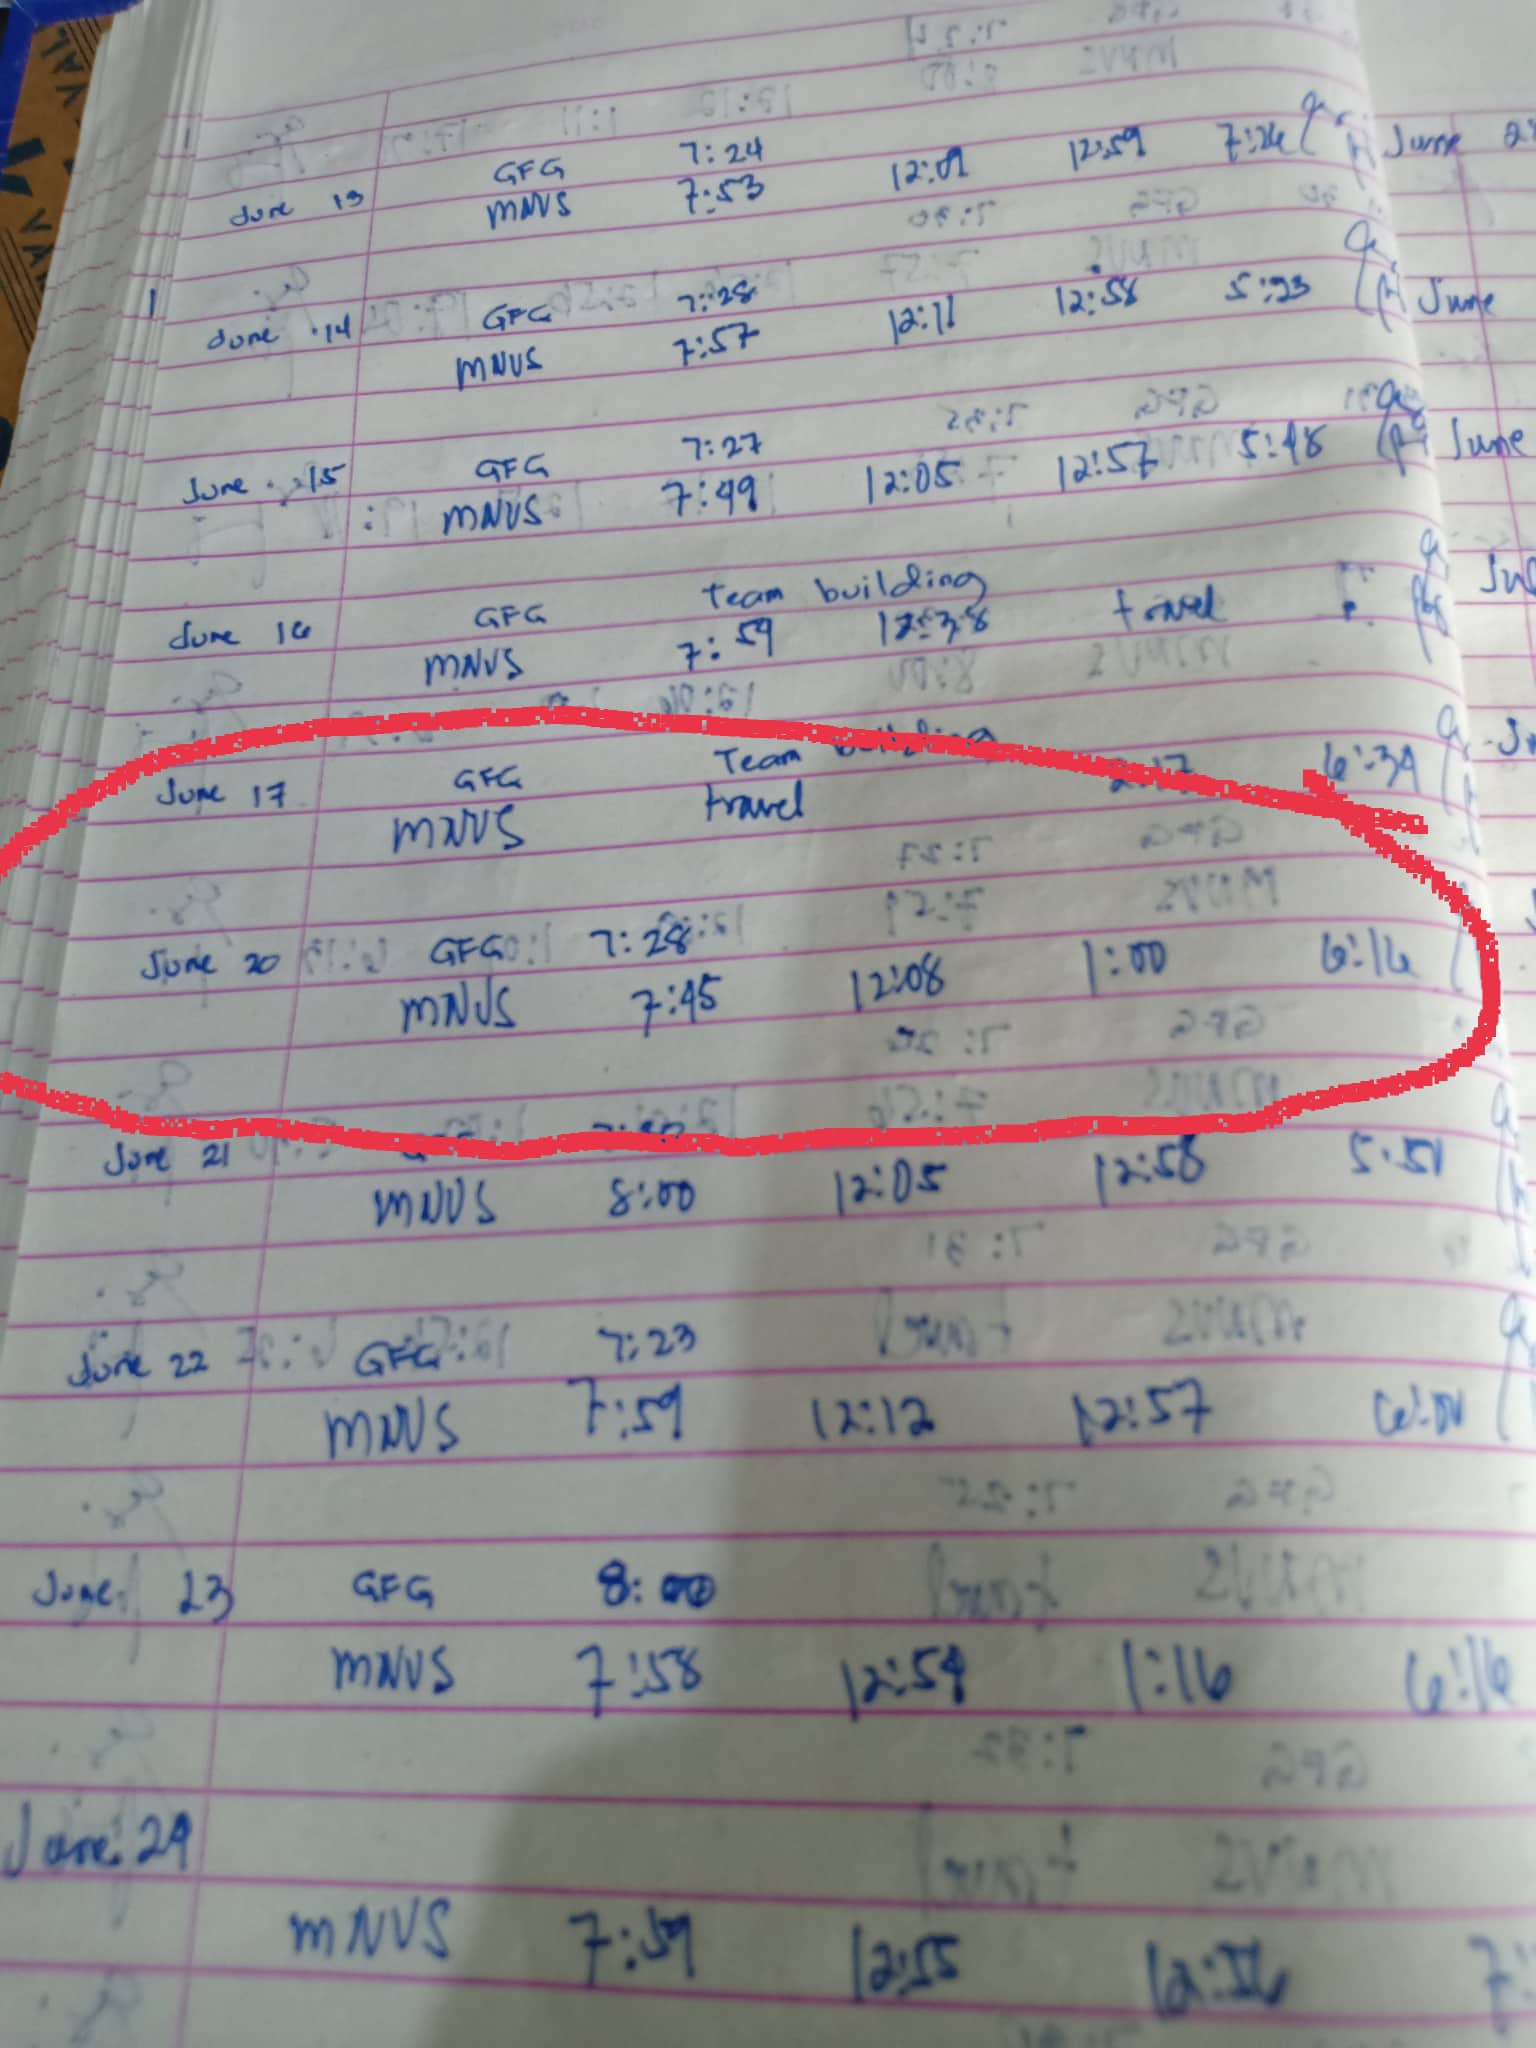 GFG 7:24
June 13 MNVS 7:53 12:01 12:59 7:26 June
June 14 GFG 7:28
MNVS 7:57 12:11 12:58 5:23 June
June 15 GFG 7:27
MNVS 7:49 12:05 12:57 5:48 June
June 16 GFG Team building
MNVS 7:59 12:38 travel
June 17 GFG Team building
MNVS travel 2:17 6:34
June 20 GFG 7:28
MNVS 7:45 12:08 1:00 6:16
June 21
MNVS 8:00 12:05 12:58 5:51
June 22 GFG 7:23
MNVS 7:59 12:12 12:57 6:01
June 23 GFG 8:00
MNVS 7:58 12:54 1:16 6:16
June 24
MNVS 7:59 12:55 12:56